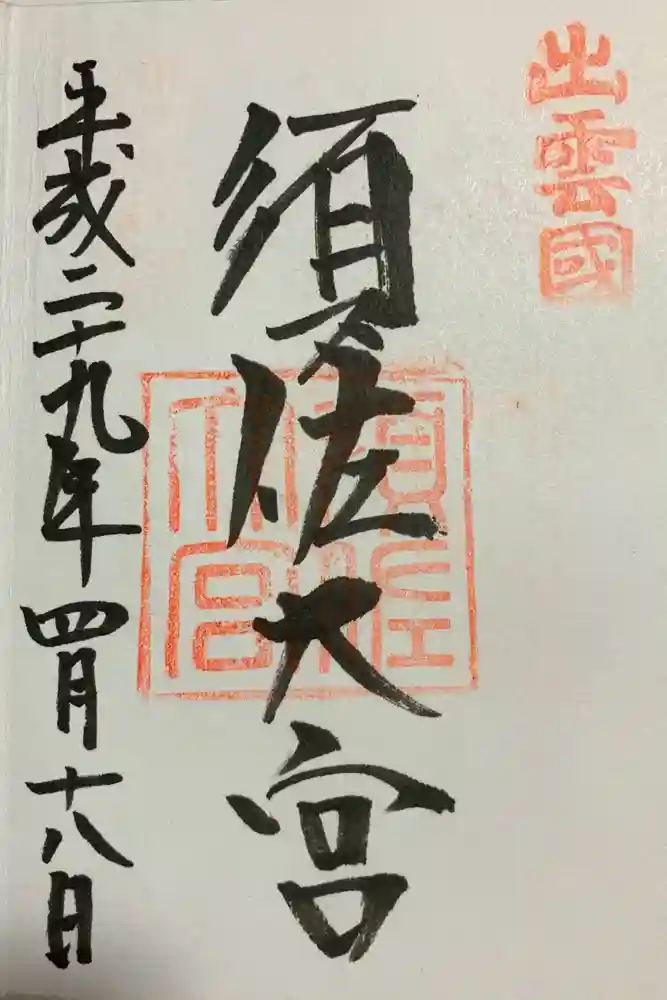 出雲國
須佐大宮
須佐大宮
平成二十九年四月十八日